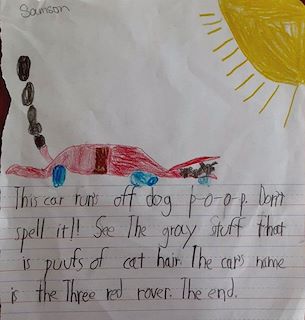 Samson
This car runs off dog p-o-o-p. Don't
spell it!! See The gray stuff that
is puufs of cat hair. The car's name
is the Three red rover. The end.